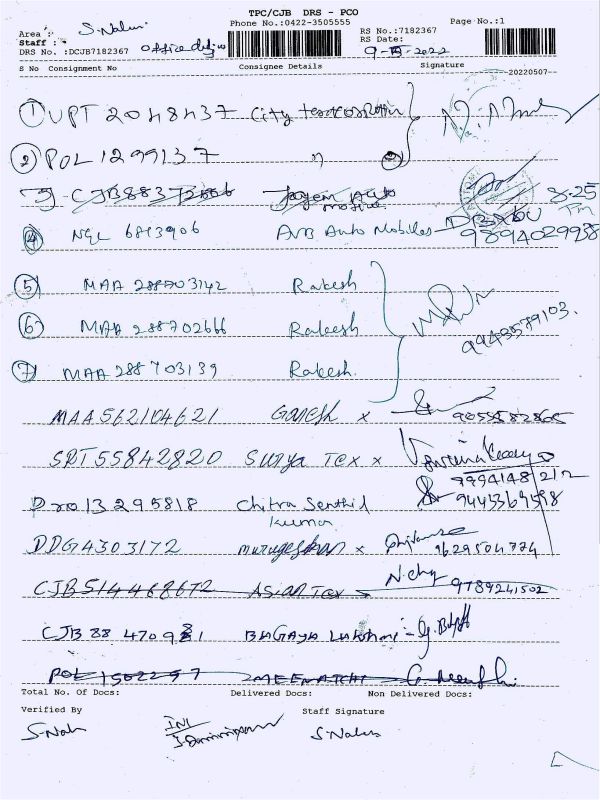 TPC/CJB DRS - PCO
Phone No.:0422-3505555 Page No.:1
Area : S. Nalus
Staff :
DRS No. :DCJB7182367
RS No.:7182367
RS Date:
S No Consignment No Consignee Details Signature
20220507
① UPT 2048437 City
② POL 1299137 "
3) CJB88372606 Jayem Auto
8.25 Pm
④ NGL 6813906 AVB Auto Mobiles
9894029938
⑤ MAA 288703142 Rakesh
⑥ MAA 288702666 Rakesh
9943579103.
⑦ MAA 288703139 Rakesh.
MAA562104621 Ganesh x
SRT55842820 Surya Tex x
Pro13295818 Chitra Senthil
Kumar
DDG4303172 murugeshan x 9629504774
CJB514468672 Asian Tex x 9789241502
CJB 88 470981 BAGAYA LAKSHMI
POL 1502257 MEENATCHI
Total No. Of Docs: Delivered Docs: Non Delivered Docs:
Verified By Staff Signature
S. Nalus